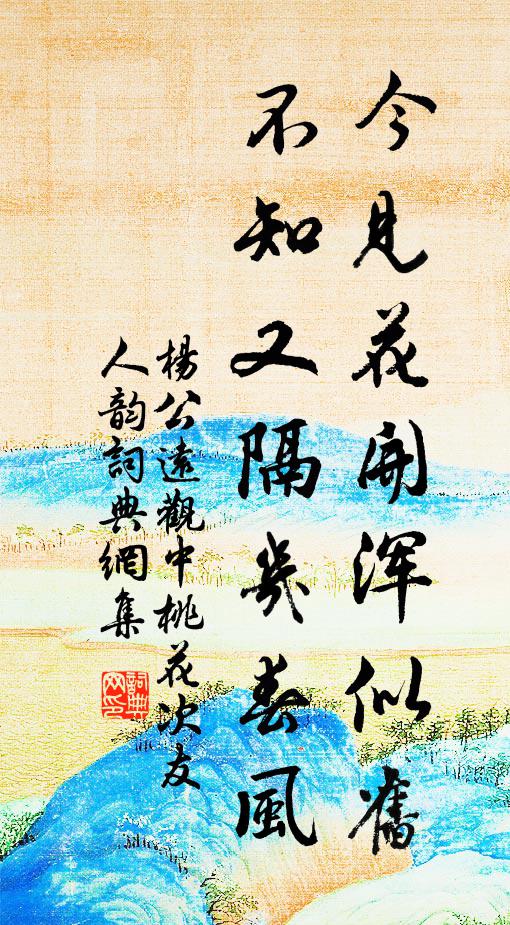 今見花開渾似舊
不知又隔幾春風
楊公遠觀中桃花次友
人韵詞典網集
詞典網印